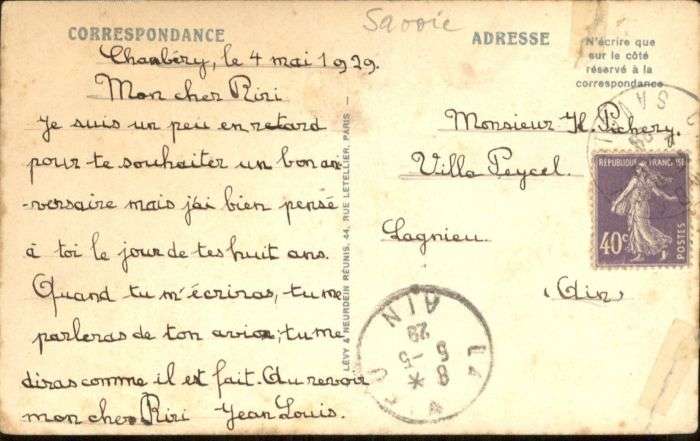 Savoie
CORRESPONDANCE
Chambéry, le 4 mai 1929.
Mon cher Riri
Je suis un peu en retard
pour te souhaiter un bon an
-versaire mais j'ai bien pensé
à toi le jour de tes huit ans.
Quand tu m'écriras, tu me
parleras de ton avion; tu me
diras comme il est fait. Au revoir
mon cher Riri Jean Louis.
LÉVY & NEURDEIN RÉUNIS, 44, RUE LETELLIER, PARIS —
ADRESSE
N'écrire que
sur le côté
réservé à la
correspondance
Monsieur H. Pichery.
Villa Peycel.
Lagnieu.
(Ain)
RÉPUBLIQUE FRANÇAISE
40c
POSTES
SAV
AIN
8 -5
5 29